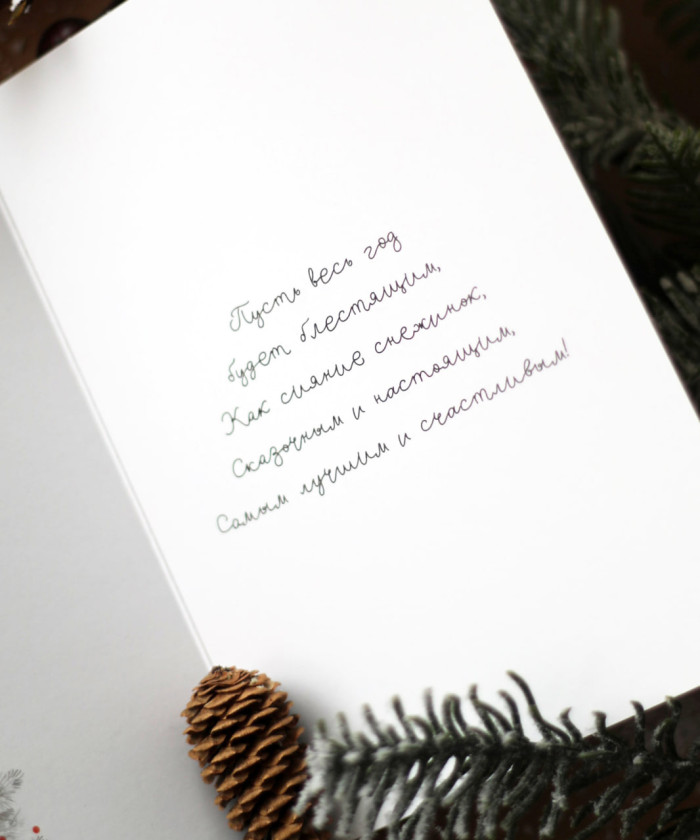 Пусть весь год
будет блестящим,
Как сияние снежинок,
Сказочным и настоящим,
Самым лучшим и счастливым!